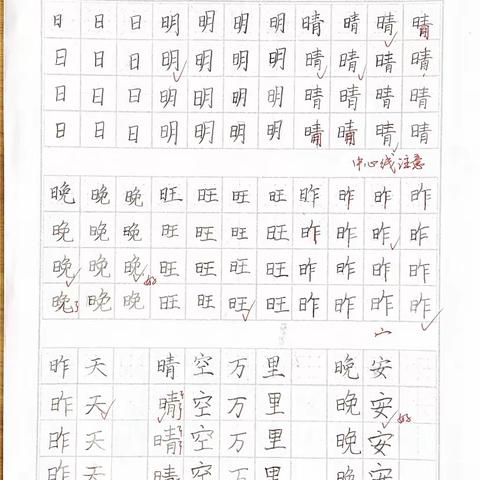 日 日 日 明 明 明 明 晴 晴 晴 晴
日 日 日 明 明 明 明 晴 晴 晴 晴
日 日 日 明 明 明 明 晴 晴 晴 晴
日 日 日 明 明 明 明 晴 晴 晴 晴
中心线注意
晚 晚 晚 旺 旺 旺 旺 昨 昨 昨 昨
晚 晚 晚 旺 旺 旺 旺 昨 昨 昨 昨
晚 晚 晚 旺 旺 旺 旺 昨 昨 昨 昨
好
晚 晚 晚 旺 旺 旺 旺 昨 昨 昨 昨
昨 天 晴 空 万 里 晚 安
昨 天 晴 空 万 里 晚 安
好
昨 天 晴 空 万 里 晚 安
昨 天 晴 空 万 里 晚 安